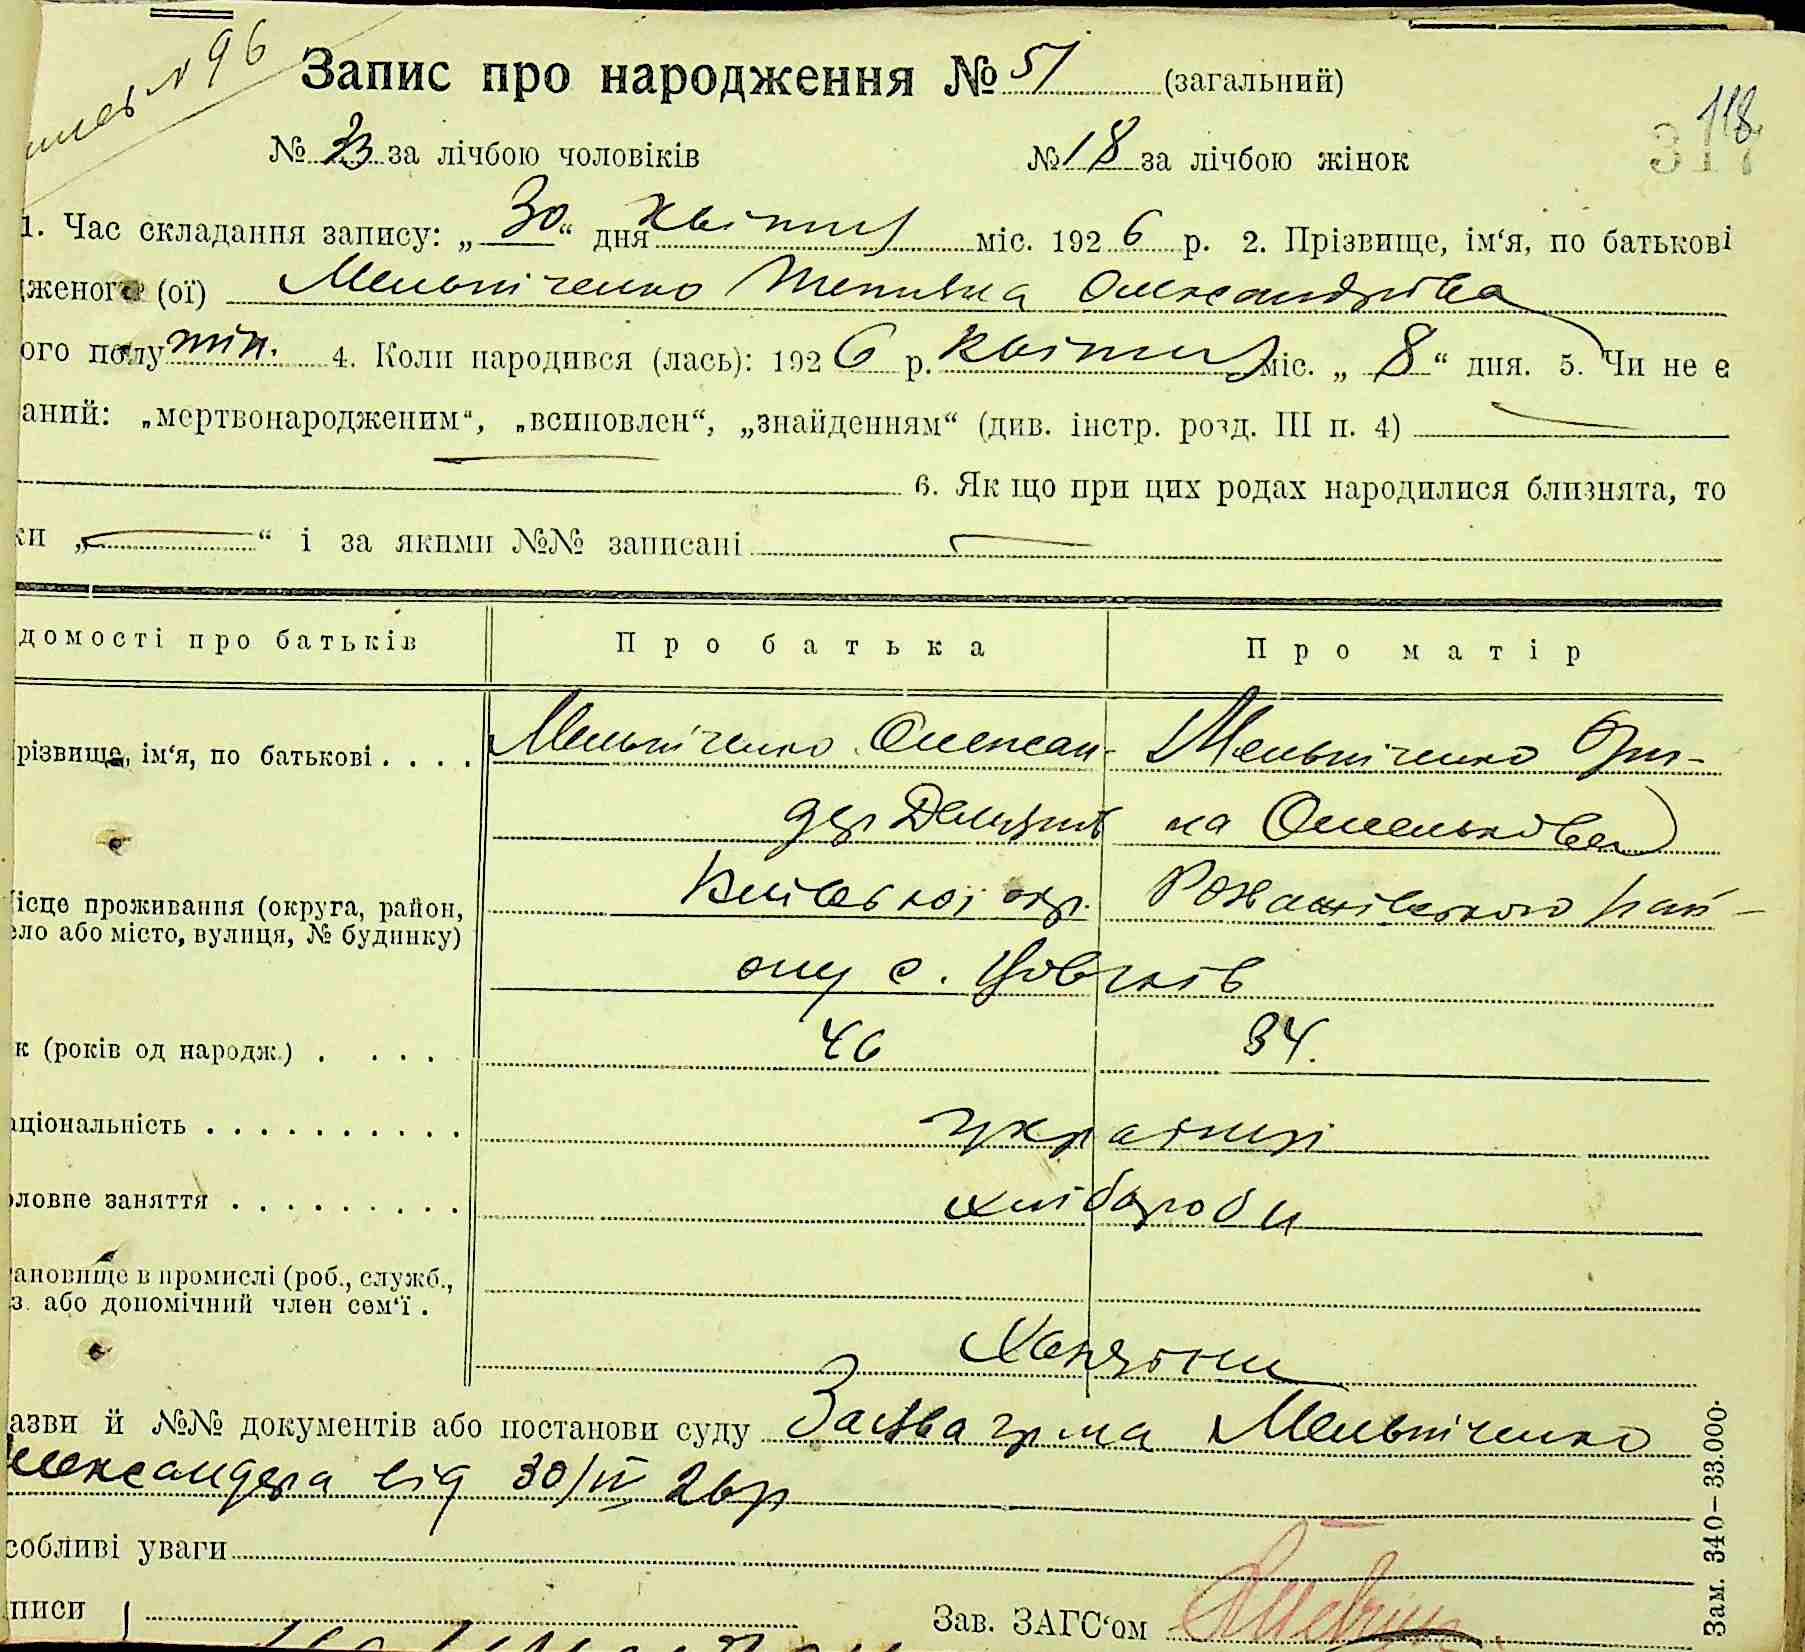 № 96
Запис про народження № 51 (загальний)
118
317
№ 33 за лічбою чоловіків № 18 за лічбою жінок
1. Час складання запису: „30“ дня квітня міс. 1926 р. 2. Прізвище, ім‘я, по батькові
дженого (ої) Мельніченко Тетяна Олександрівна
ого полу жін. 4. Коли народився (лась): 1926 р. квітня міс. „8“ дня. 5. Чи не є
аний: „мертвонародженим“, „всиновлен“, „знайденням“ (див. інстр. розд. III п. 4)
6. Як що при цих родах народилися близнята, то
ки „ “ і за якими №№ записані
домості про батьків Про батька Про матір
різвище, ім‘я, по батькові . . . . Мельніченко Олексан- Мельніченко
дер на Омелькова
ісце проживання (округа, район, Київської окр. району
ело або місто, вулиця, № будинку)
с.
к (років од народж.) . . . . 46 34.
аціональність . . . . . . . . . . українці
оловне заняття . . . . . . . . . хлібороби
ановище в промислі (роб., служб.,
з. або допомічний член сем‘ї .
Хазяїни
азви й №№ документів або постанови суду Заява гр-на Мельніченко
лександра від 30/IV 26 р
собливі уваги
писи Зав. ЗАГС‘ом
Зам. 340–33.000.